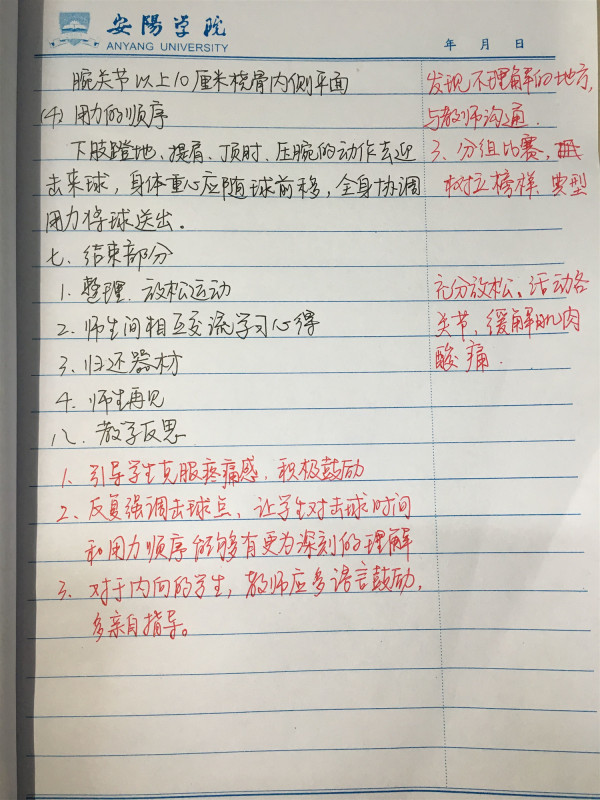 安陽学院
ANYANG UNIVERSITY
年 月 日
腕关节以上10厘米桡骨内侧平面
(4) 用力的顺序
下肢蹬地、提肩、顶肘、压腕的动作去迎
击来球，身体重心应随球前移，全身协调
用力将球送出.
七、结束部分
1. 整理、放松运动
2. 师生间相互交流学习心得
3. 归还器材
4. 师生再见
八、教学反思
1. 引导学生克服疼痛感，积极鼓励
2、反复强调击球点、让学生对击球时间
和用力顺序能够有更为深刻的理解
3. 对于内向的学生，教师应多语言鼓励，
多亲自指导。
发现不理解的地方，
与教师沟通.
3、分组比赛，
树立榜样、典型
充分放松、活动各
关节，缓解肌肉
酸痛.